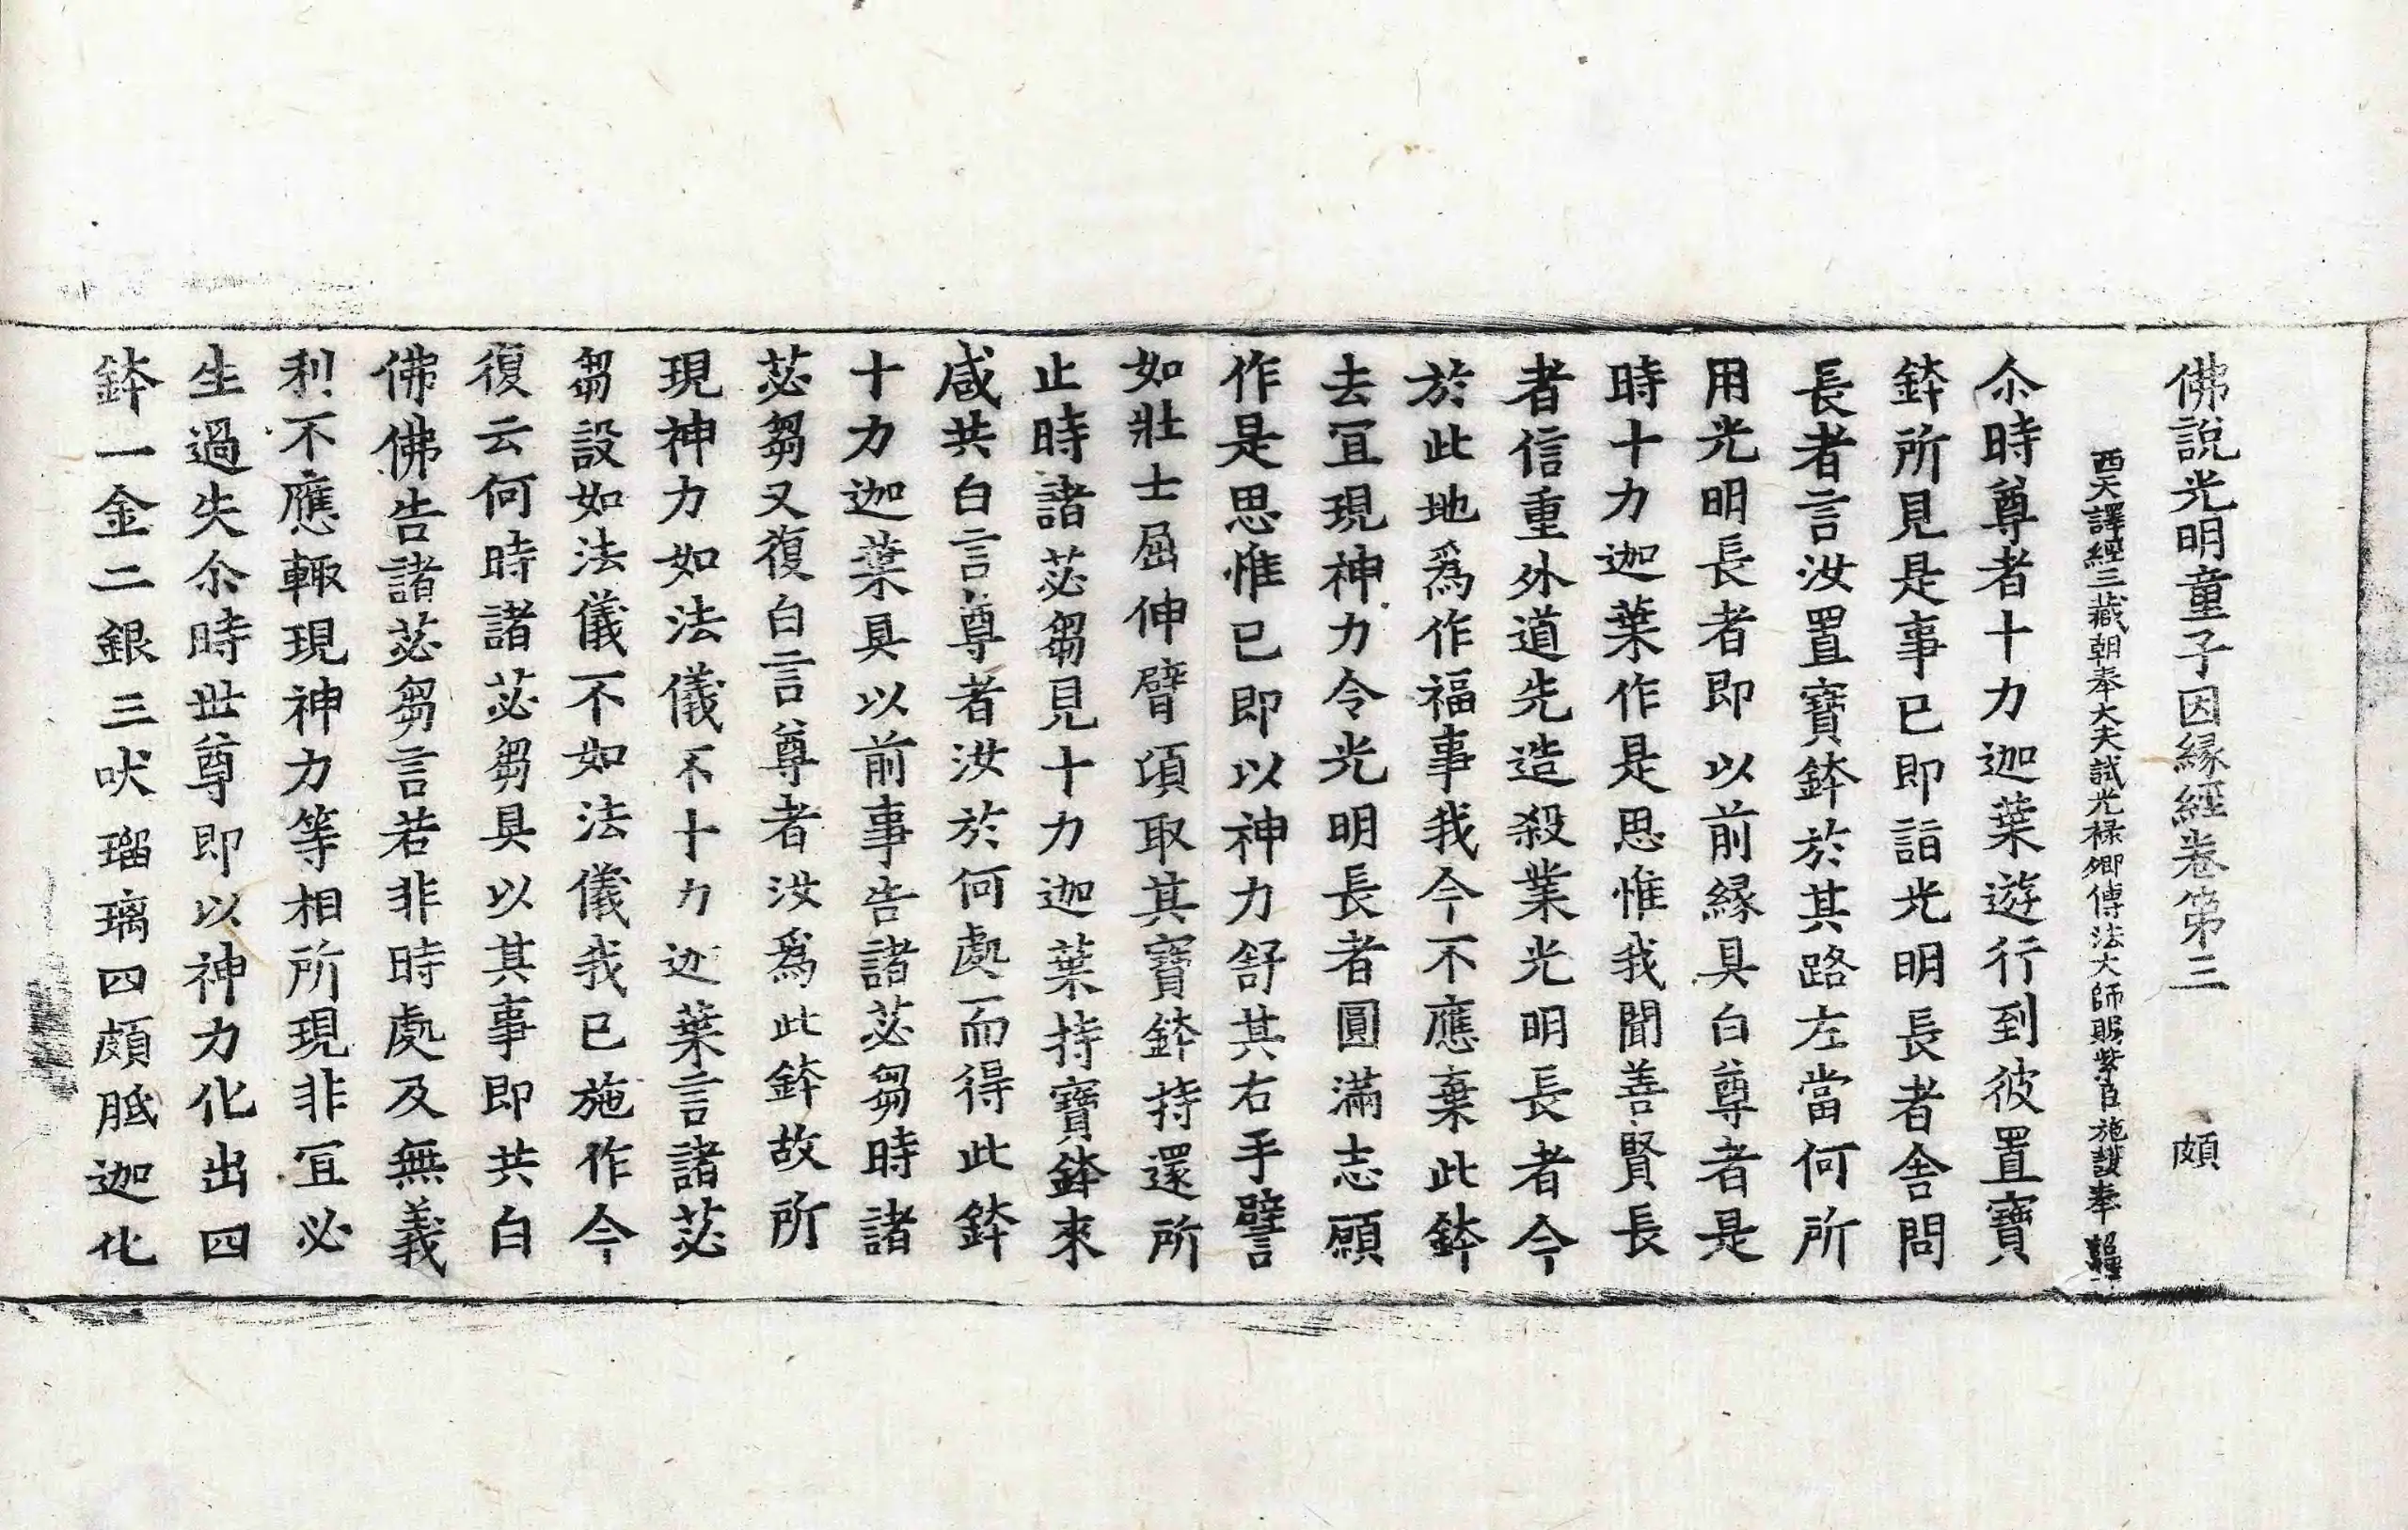 佛説光明童子因縁經卷第三 頗
西天譯經三藏朝奉大夫試光祿卿傳法大師賜紫臣施護奉 詔譯
尒時尊者十力迦葉遊行到彼置寶
鉢所見是事已即詣光明長者舎問
長者言汝置寶鉢於其路左當何所
用光明長者即以前縁具白尊者是
時十力迦葉作是思惟我聞善賢長
者信重外道先造殺業光明長者今
於此地爲作福事我今不應棄此鉢
去冝現神力令光明長者圓滿志願
作是思惟已即以神力舒其右手譬
如壯士屈伸臂頃取其寶鉢持還所
止時諸苾芻見十力迦葉持寶鉢來
咸共白言尊者汝於何處而得此鉢
十力迦葉具以前事告諸苾芻時諸
苾芻又復白言尊者汝爲此鉢故所
現神力如法儀不十力迦葉言諸苾
芻設如法儀不如法儀我已施作今
復云何時諸苾芻具以其事即共白
佛佛告諸苾芻言若非時處及無義
利不應輙現神力等相所現非冝必
生過失尒時世尊即以神力化出四
鉢一金二銀三吠瑠璃四頗胝迦化